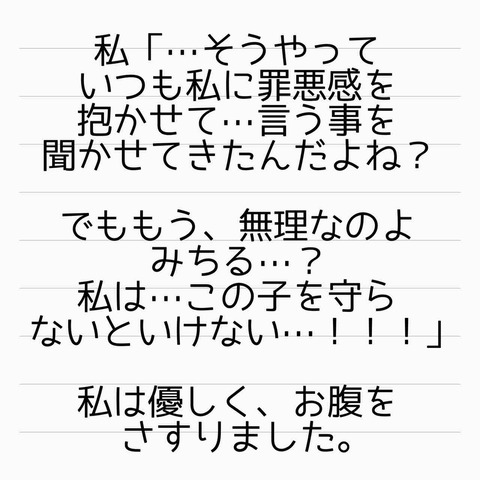 私「…そうやって
いつも私に罪悪感を
抱かせて…言う事を
聞かせてきたんだよね？
でももう、無理なのよ
みちる…？
私は…この子を守ら
ないといけない…！！！」
私は優しく、お腹を
さすりました。